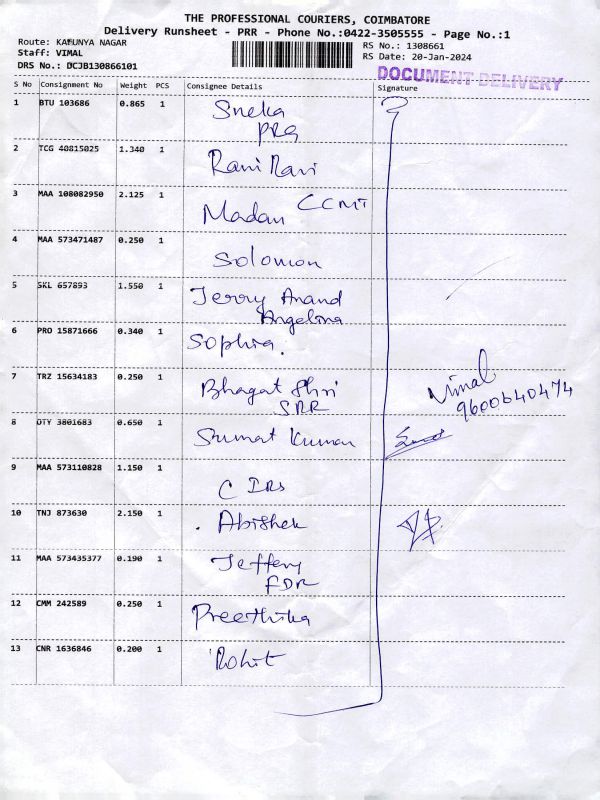 THE PROFESSIONAL COURIERS, COIMBATORE
Delivery Runsheet - PRR - Phone No.:0422-3505555 - Page No.:1
Route: KARUNYA NAGAR
Staff: VIMAL
DRS No.: DCJB130866101
RS No.: 1308661
RS Date: 20-Jan-2024
DOCUMENT DELIVERY
S No Consignment No Weight PCS Consignee Details Signature
1 BTU 103686 0.865 1 Sneka
PRG
2 TCG 40815025 1.340 1 Rani Ravi
3 MAA 108082950 2.125 1 Madan CCMT
4 MAA 573471487 0.250 1 Solomon
5 SKL 657893 1.550 1 Jerry Anand
Angelina
6 PRO 15871666 0.340 1 Sophia.
7 TRZ 15634183 0.250 1 Bhagat Shri
SRR
Vimal
9600640474
8 DTY 3801683 0.650 1 Sumat Kumar
9 MAA 573110828 1.150 1 C IRS
10 TNJ 873630 2.150 1 Abishek
11 MAA 573435377 0.190 1 Jeffery
FDR
12 CMM 242589 0.250 1 Preethika
13 CNR 1636846 0.200 1 Rohit